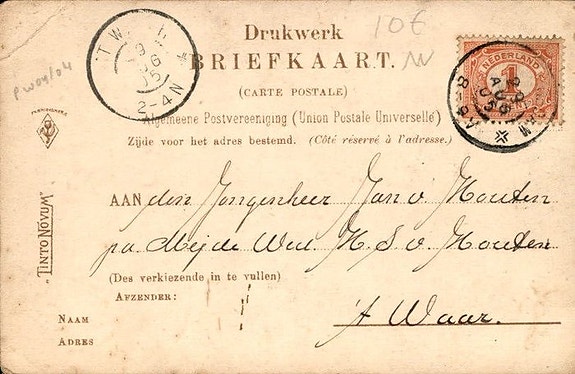 Drukwerk
10€
BRIEFKAART.
(CARTE POSTALE)
Algemeene Postvereeniging (Union Postale Universelle)
Zijde voor het adres bestemd. (Côté réservé à l'adresse.)
NEDERLAND
1
2-4N
PW04/04
"TINTO NOVUM"
AAN den Jongenheer Jan v. Houten
pa Mejde Wed. H. S. v. Houten
(Des verkiezende in te vullen)
AFZENDER:
't Waar.
NAAM
ADRES